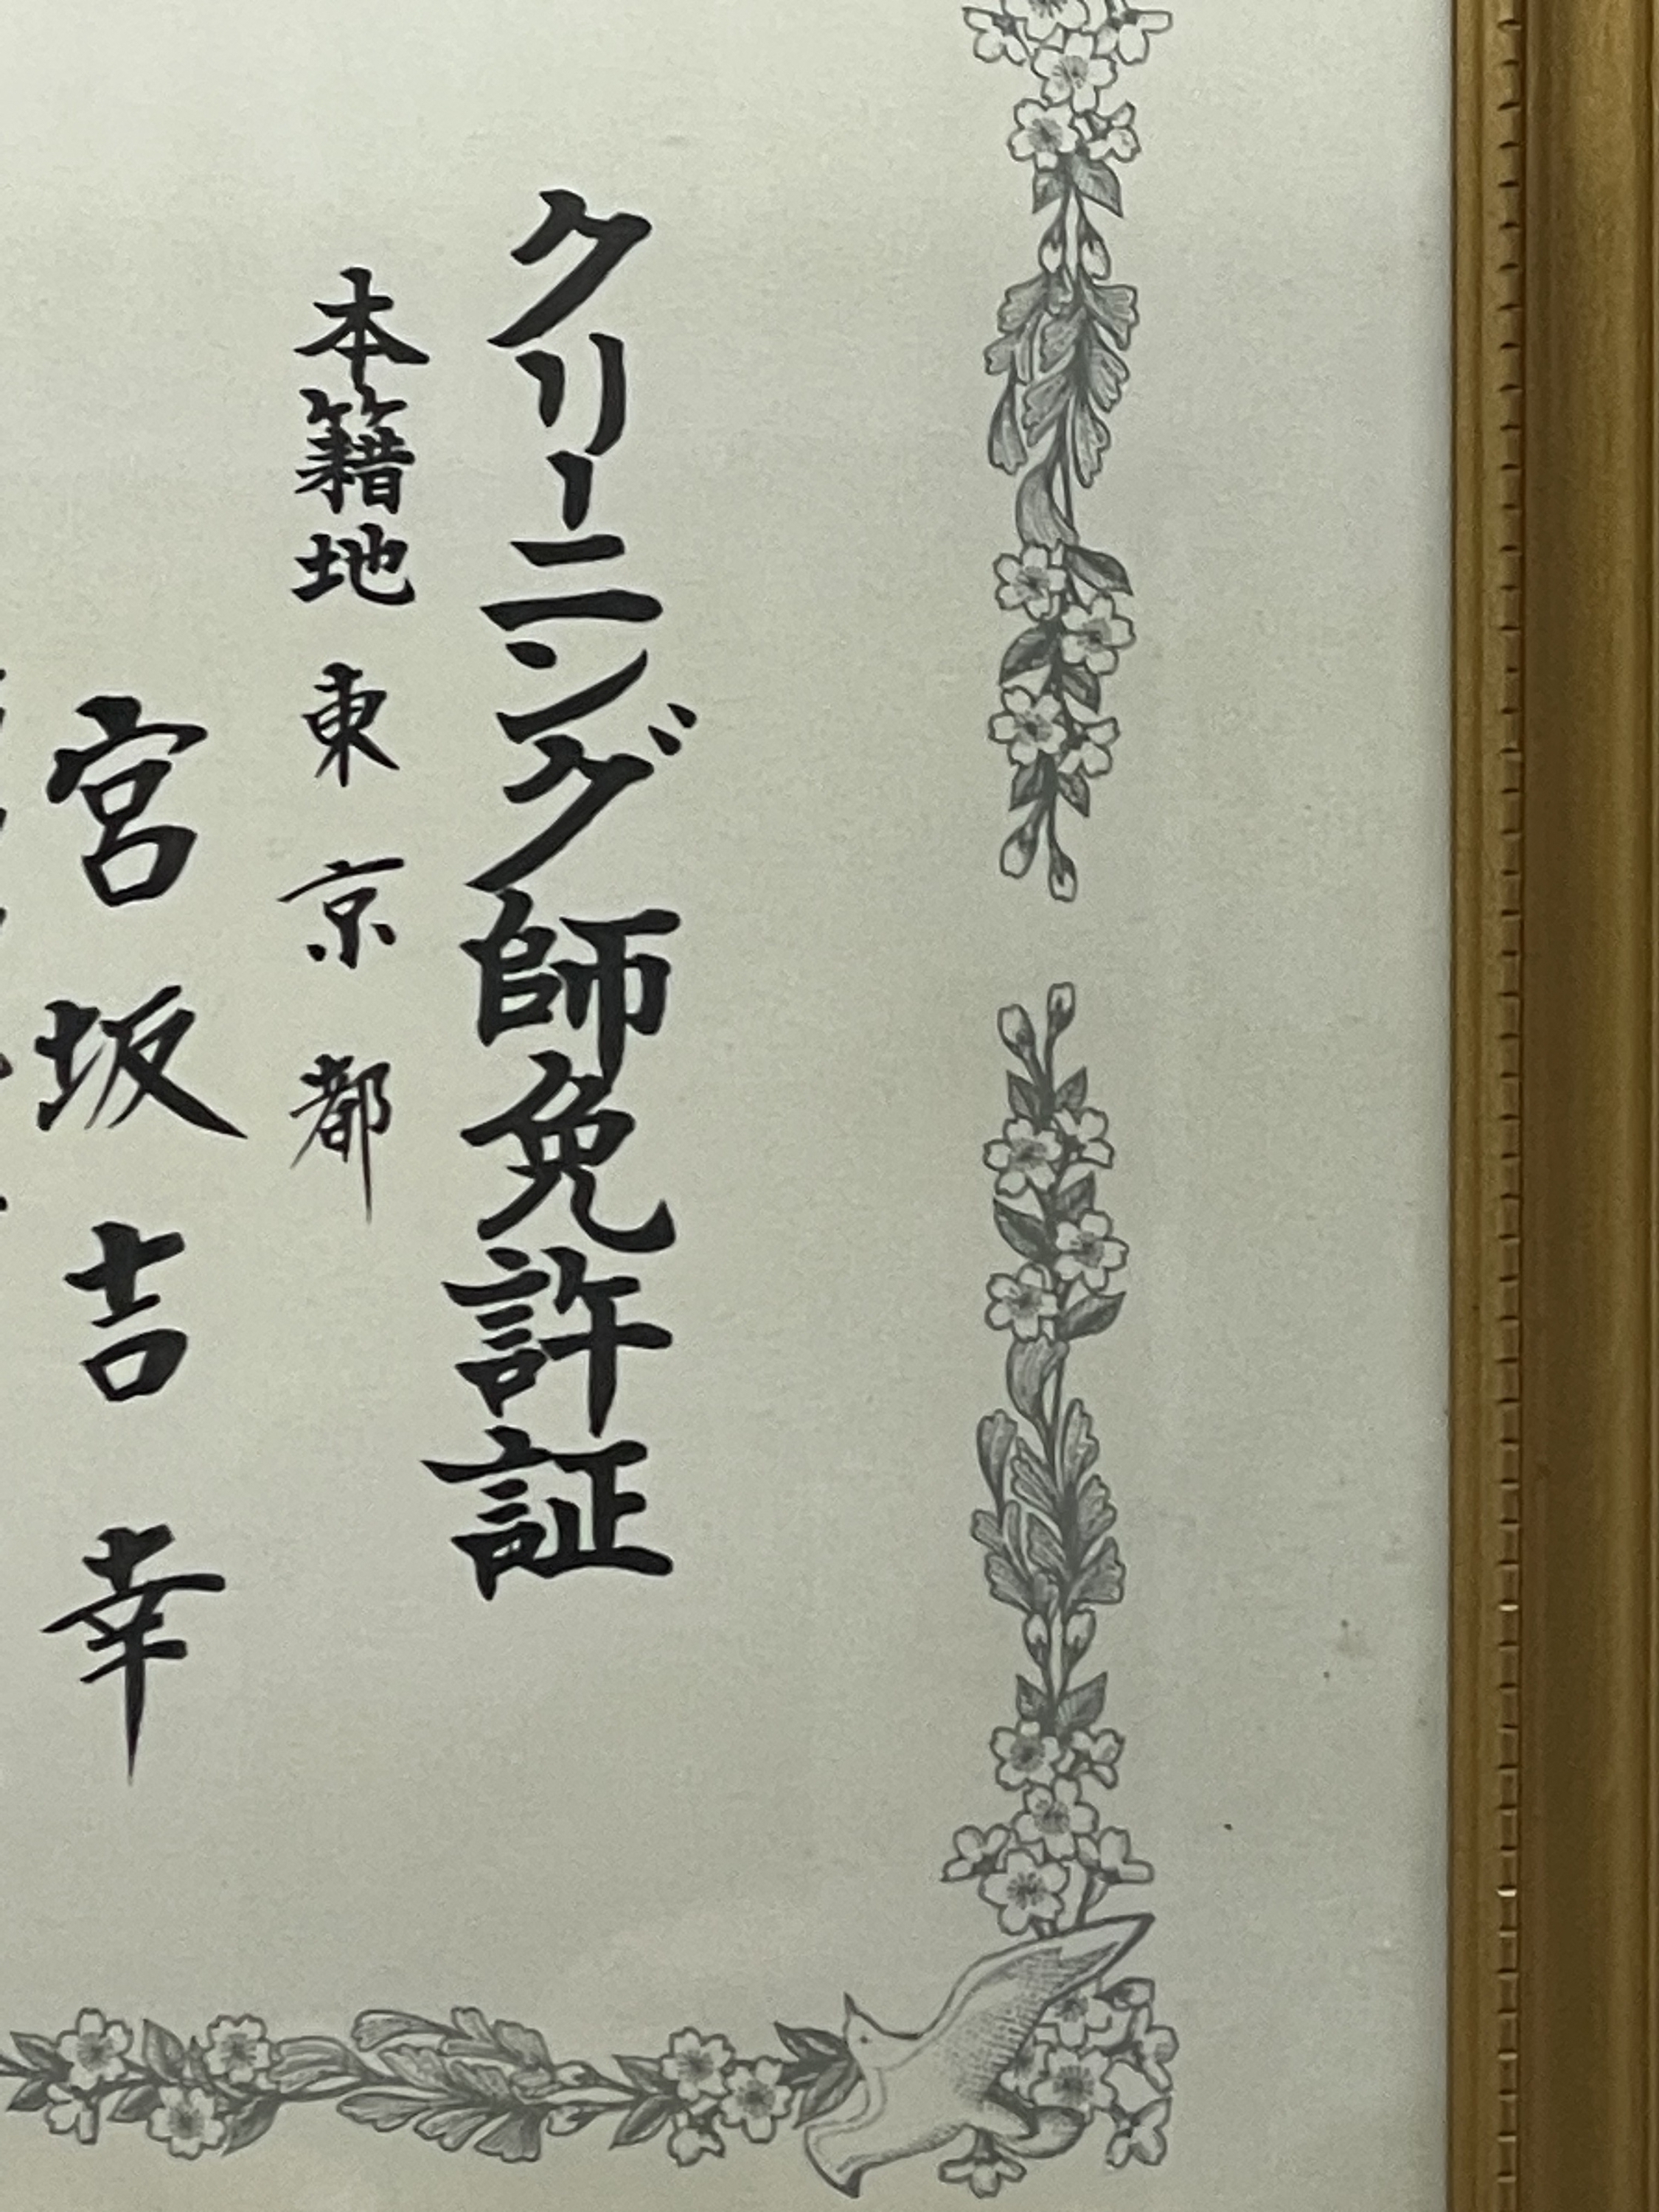 クリーニング師免許証
本籍地 東京都
宮坂吉幸